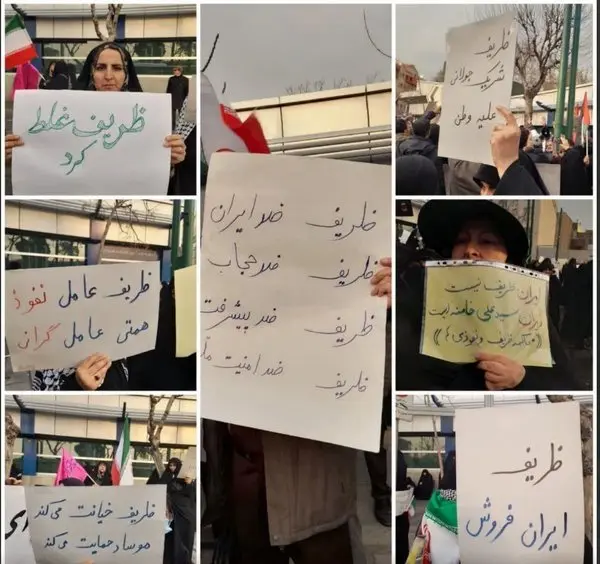 ظریف غلط
کرد
ظریف
شریک جولانی
علیه وطن
ظریف ضد ایران
ظریف ضد حجاب
ظریف ضد پیشرفت
ظریف ضد امنیت
ظریف عامل نفوذ
همتی عامل گرانی
ایران ظریف نیست
ایران سید علی خامنه ایست
ظریف خیانت می‌کند
موساد حمایت می‌کند
ظریف
ایران فروش